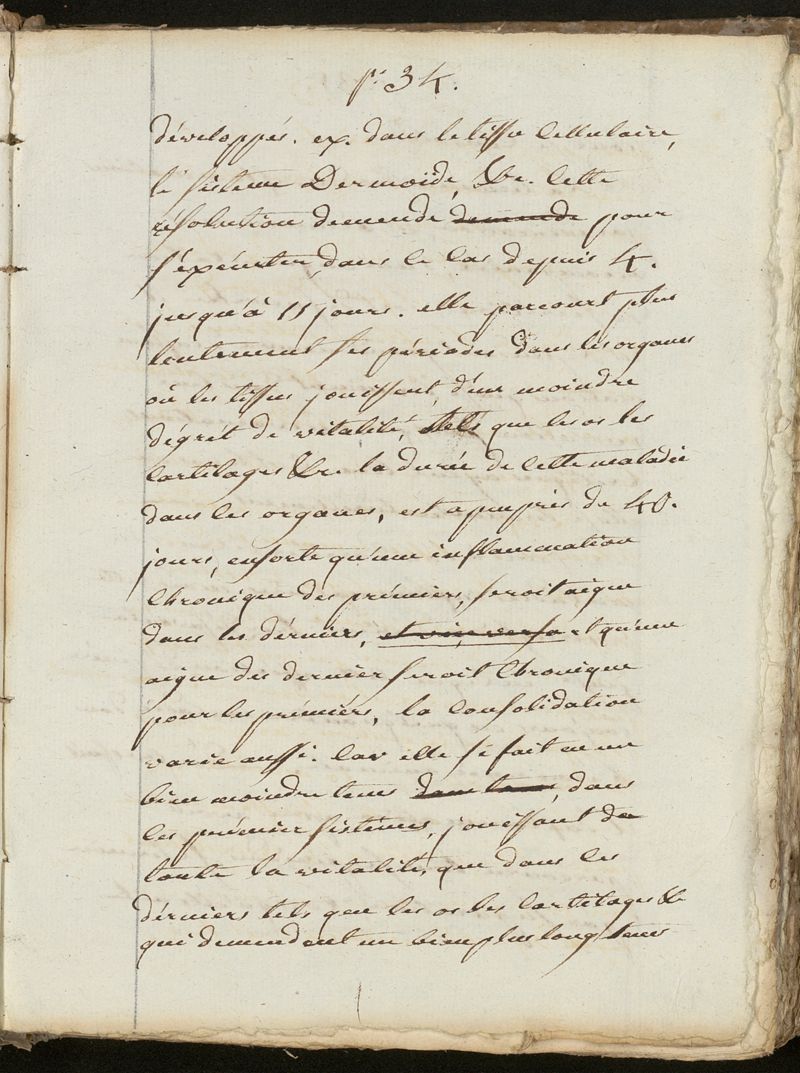 p. 34.
développés. ex. dans le tissu Cellulaire,
le sisteme Dermoïde, &c. Cette
résolution demende demende pour
s'éxécuter, dans le cas depuis 4.
jusqu'à 11 jours. elle parcourt plus
lentement ses périodes dans les organes
où les tissus jouissent, d'une moindre
dégrét de vitalité, tels que les os les
Cartilages &c. la durée de Cette maladie
dans les organes, est apeuprès de 40.
jours, ensorte qu'une inflammation
Chronique des prémiers, seroit aigue
dans les dérniers, et vice versa et qu'une
aigue des dernier seroit Chronique
pour les prémiérs, la Consolidation
varie aussi. Car elle se fait en un
bien moindre tems dans tems, dans
les prémier sistemes, jouissant de
toute la vitalité, que dans les
dérniers tels que les os les Cartilages &c
qui demendent un bien plus long tems